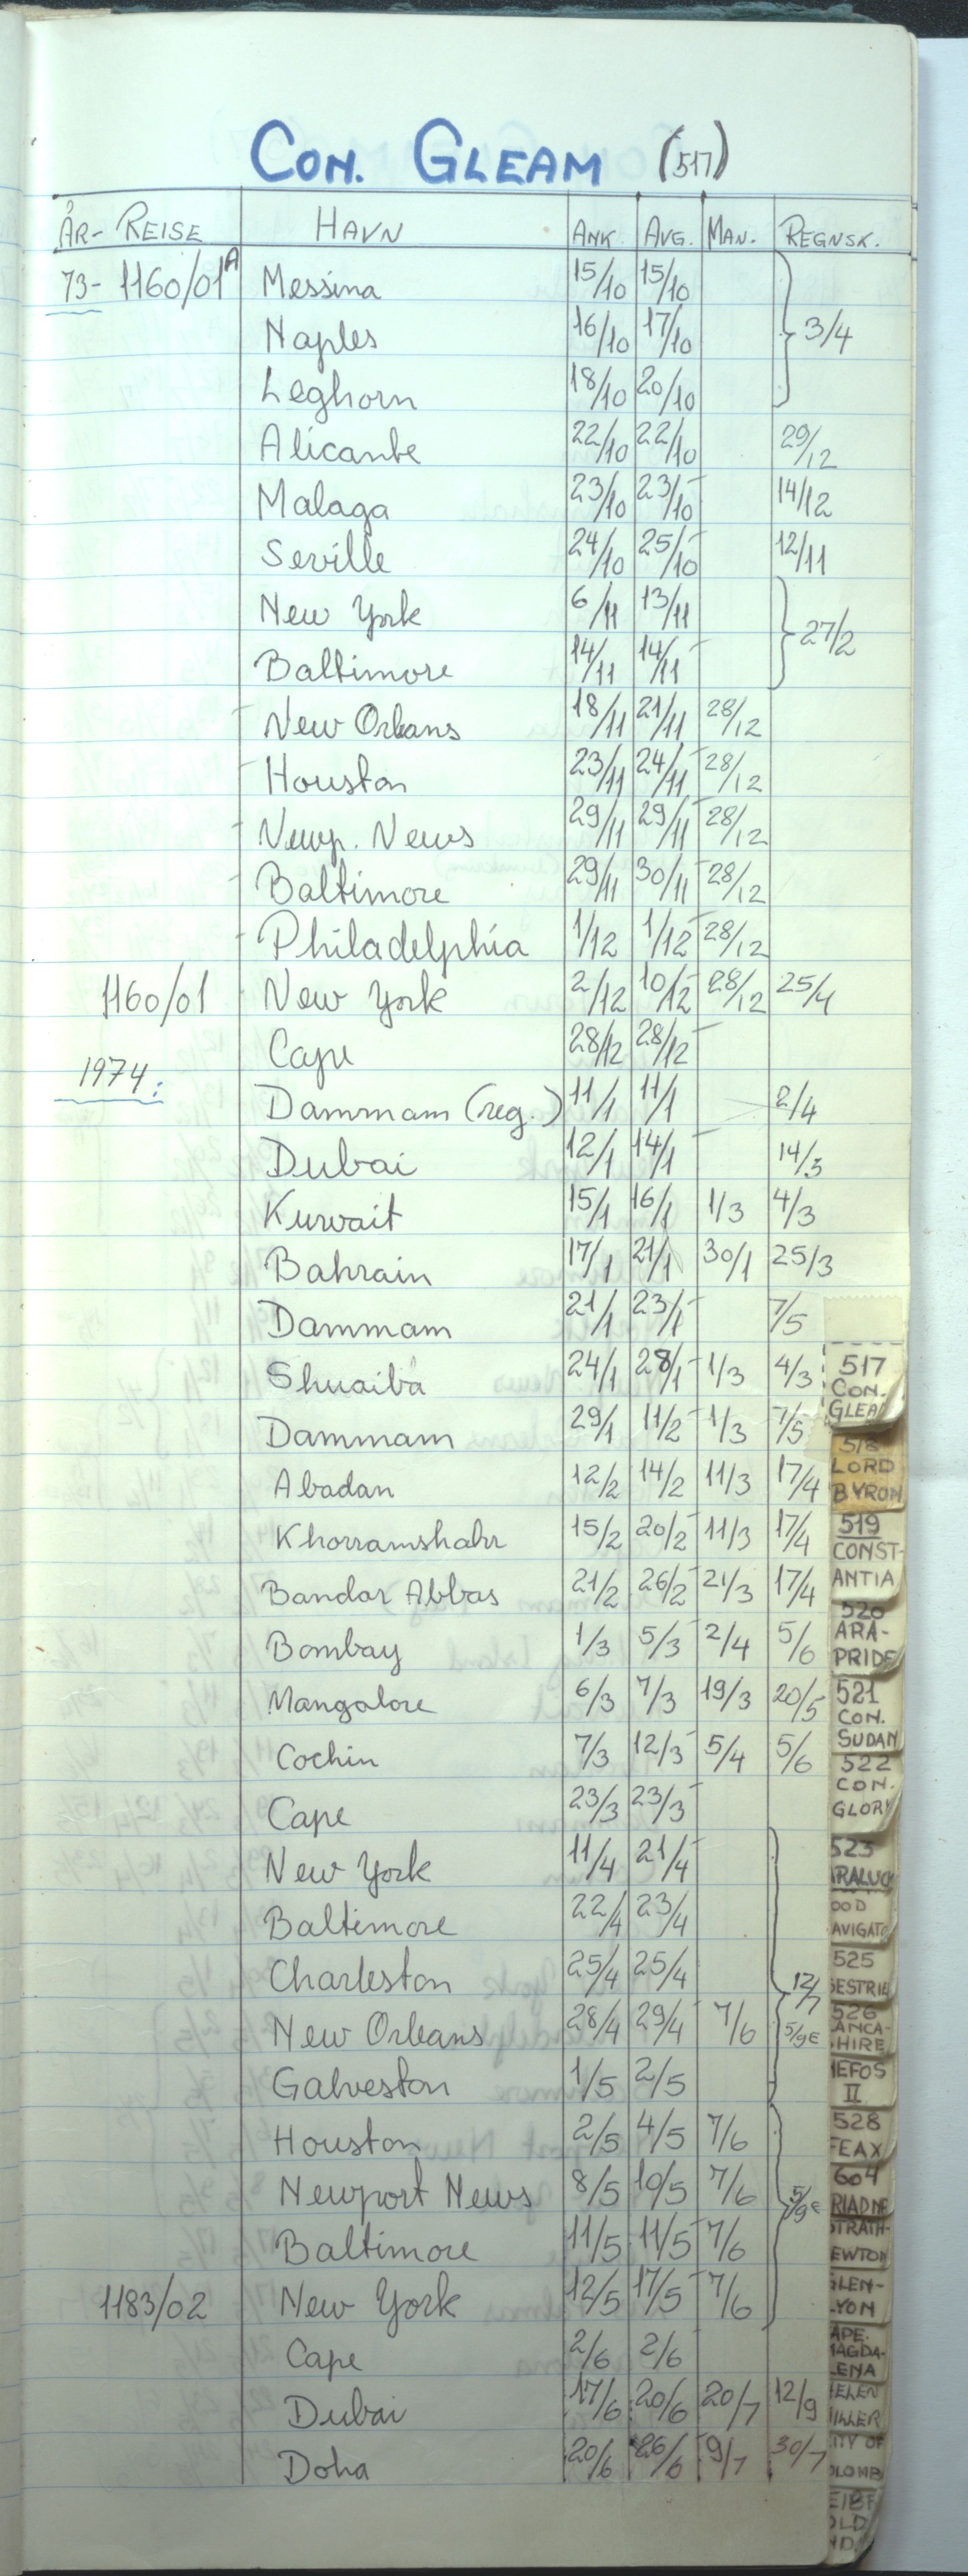 CON. GLEAM (517)
ÅR- REISE HAVN ANK. AVG. MAN. REGNSK.
73- 1160/01A Messina 15/10 15/10
Naples 16/10 17/10 3/4
Leghorn 18/10 20/10
Alicante 22/10 22/10 29/12
Malaga 23/10 23/10 14/12
Seville 24/10 25/10 12/11
New York 6/11 13/11
27/2
Baltimore 14/11 14/11
New Orleans 18/11 21/11 28/12
Houston 23/11 24/11 28/12
Newp. News 29/11 29/11 28/12
Baltimore 29/11 30/11 28/12
Philadelphia 1/12 1/12 28/12
1160/01 New York 2/12 10/12 28/12 25/4
Cape 28/12 28/12
1974:
Dammam (reg.) 11/1 11/1 2/4
Dubai 12/1 14/1 14/3
Kuwait 15/1 16/1 1/3 4/3
Bahrain 17/1 21/1 30/1 25/3
Dammam 21/1 23/1 7/5
Shuaiba 24/1 28/1 1/3 4/3
Dammam 29/1 11/2 1/3 7/5
Abadan 12/2 14/2 11/3 17/4
Khorramshahr 15/2 20/2 11/3 17/4
Bandar Abbas 21/2 26/2 21/3 17/4
Bombay 1/3 5/3 2/4 5/6
Mangalore 6/3 7/3 19/3 20/5
Cochin 7/3 12/3 5/4 5/6
Cape 23/3 23/3
New York 11/4 21/4
Baltimore 22/4 23/4
Charleston 25/4 25/4
12/7
New Orleans 28/4 29/4 7/6 5/9E
Galveston 1/5 2/5
Houston 2/5 4/5 7/6
Newport News 8/5 10/5 7/6 5/9E
Baltimore 11/5 11/5 7/6
1183/02 New York 12/5 17/5 7/6
Cape 2/6 2/6
Dubai 17/6 20/6 20/7 12/9
Doha 20/6 26/6 9/7 30/7
517
CON.
GLEA
518
LORD
BYRON
519
CONST-
ANTIA
520
ARA-
PRIDE
521
CON.
SUDAN
522
CON.
GLORY
523
ARALUCK
OOD
AVIGATO
525
SESTRIE
526
LANCA-
SHIRE
NEFOS
II
528
FEAX
604
RIADNE
STRATH-
EWTON
GLEN-
LYON
APE.
MAGDA-
LENA
HELEN
MILLER
ITY OF
OLOMB